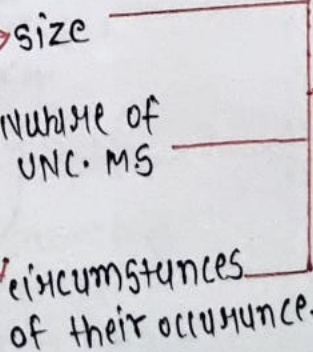 size
Nature of
UNC. MS
circumstances
of their occurance.